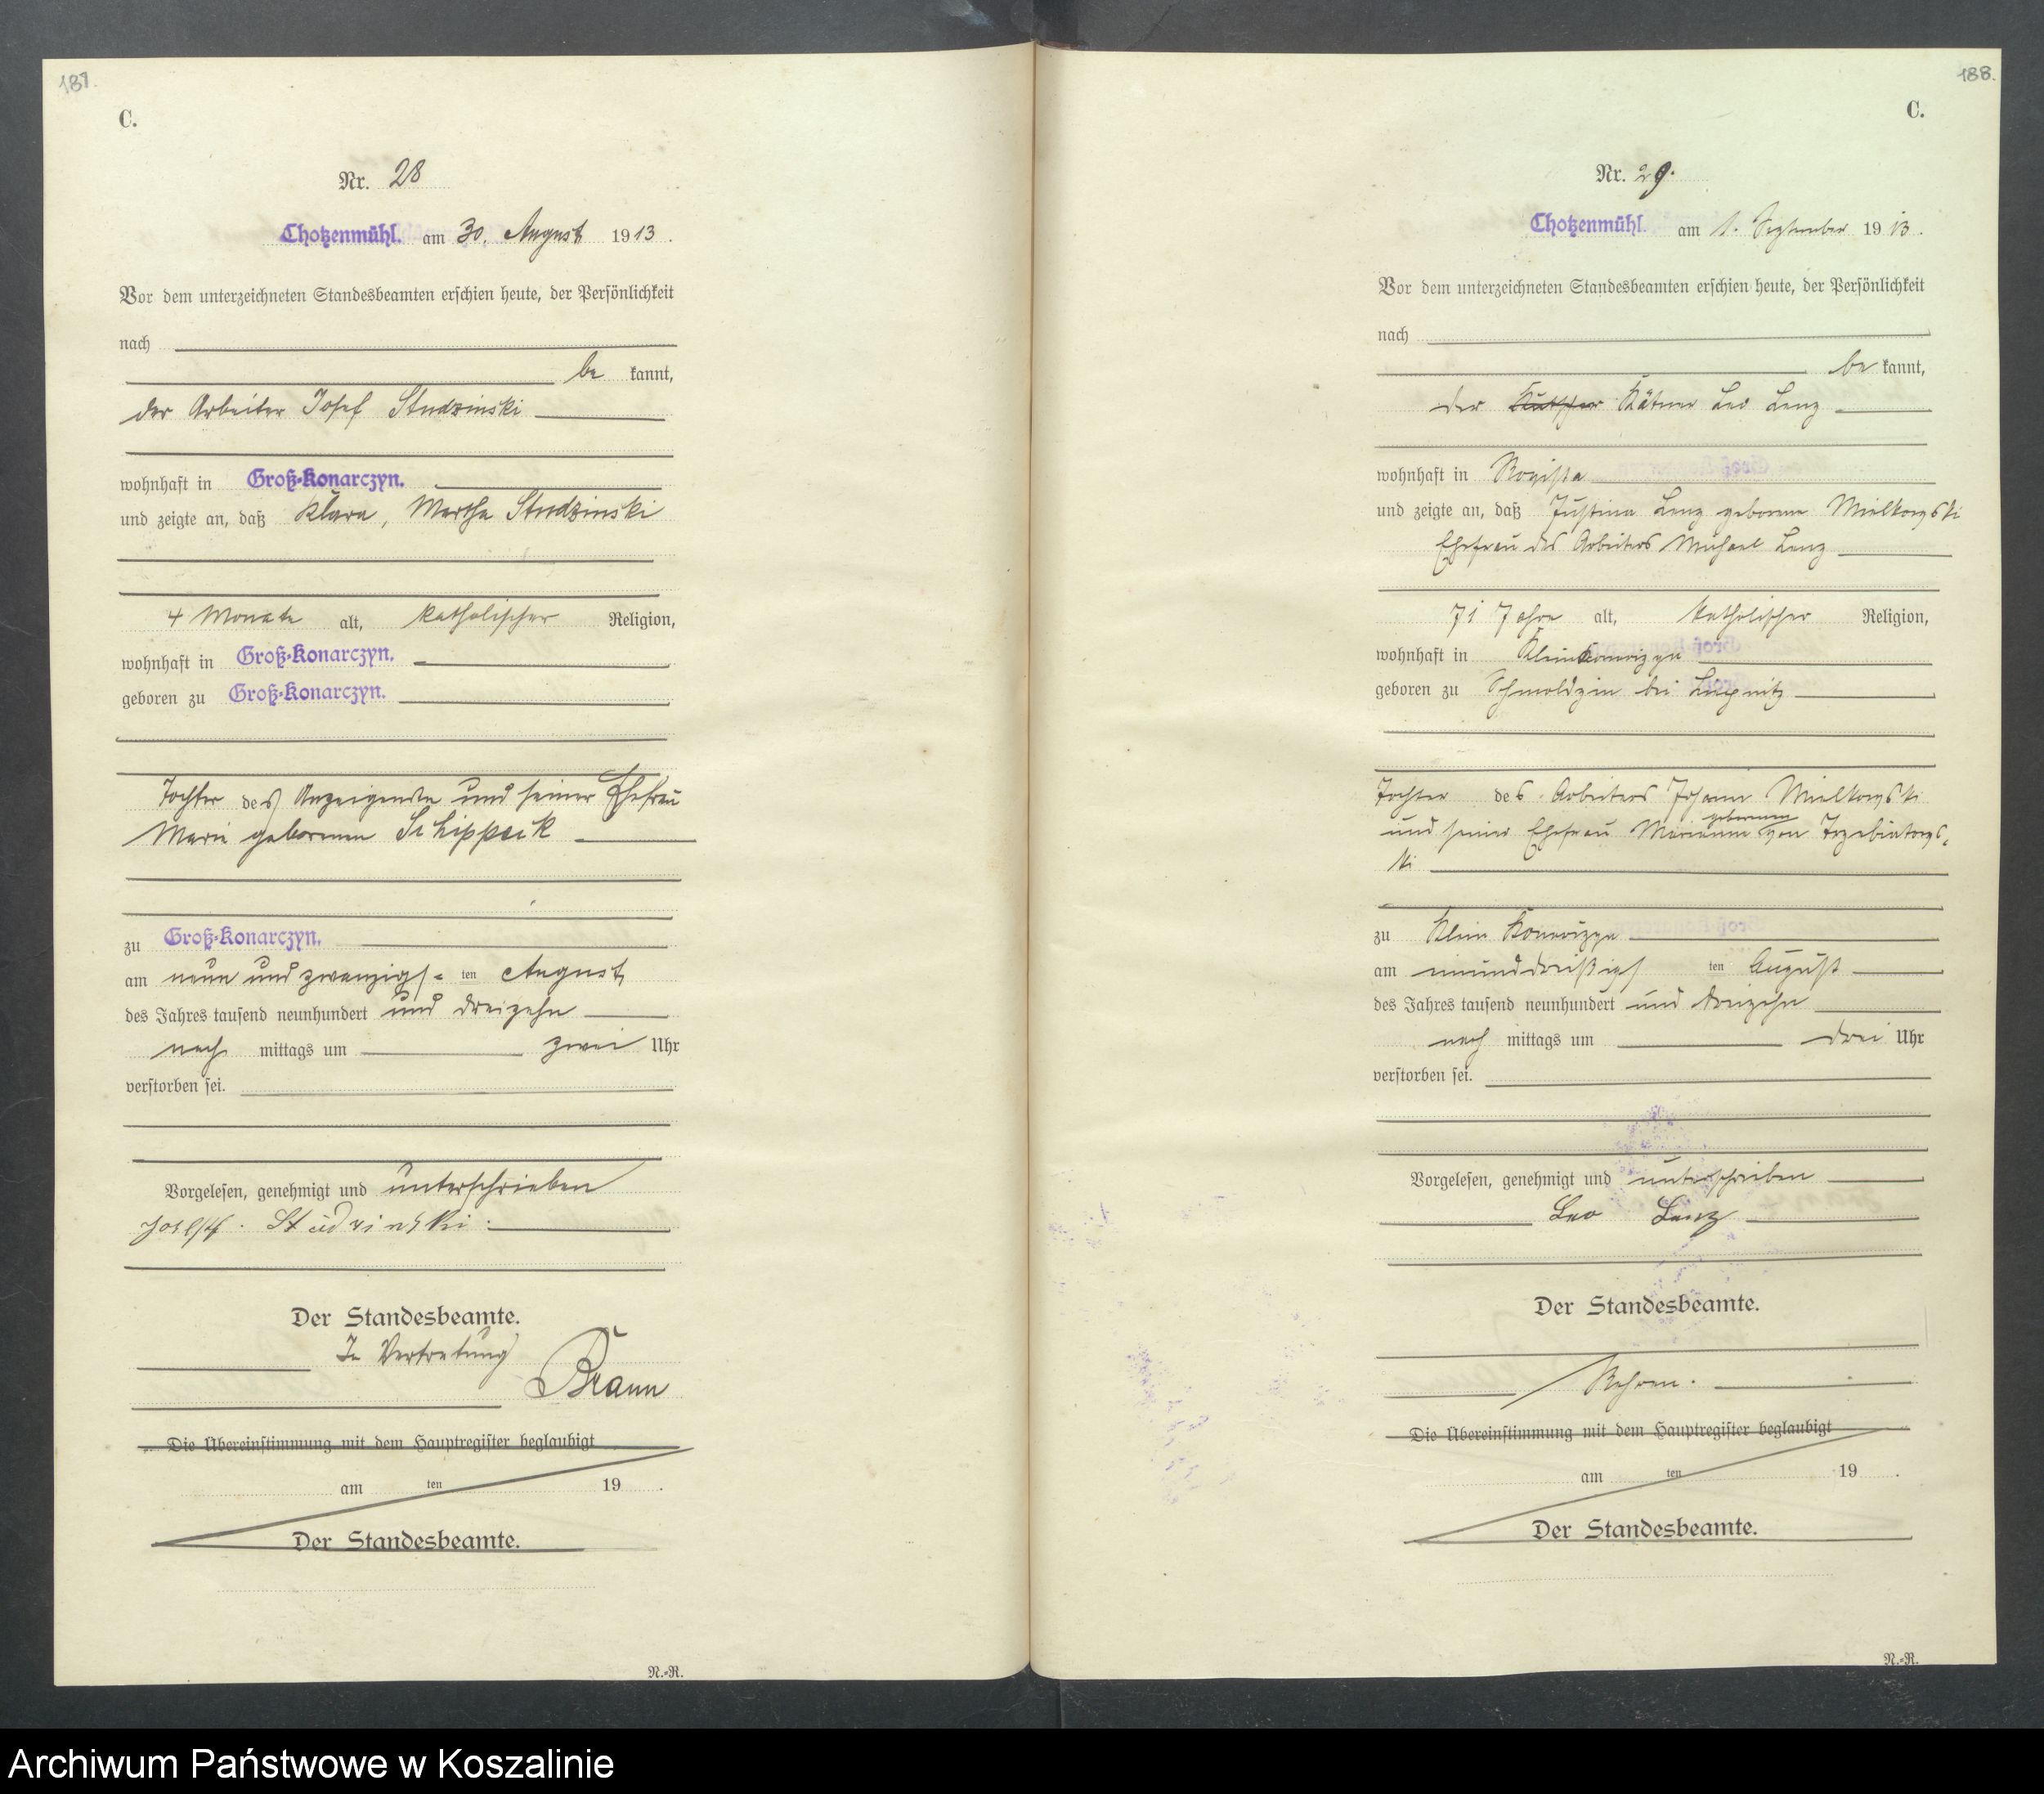 187.
C.
Nr. 28
Chotzenmühl. am 30. August 1913.
Vor dem unterzeichneten Standesbeamten erschien heute, der Persönlichkeit
nach
be kannt,
der Arbeiter Josef Studzinski
wohnhaft in Groß-Konarczyn.
und zeigte an, daß Klara, Martha Studzinski
4 Monate alt, katholischer Religion,
wohnhaft in Groß-Konarczyn.
geboren zu Groß-Konarczyn.
Tochter des Anzeigenden und seiner Ehefrau
Marie geborenen Schippeik
zu Groß-Konarczyn.
am neun und zwanzigs= ten August
des Jahres tausend neunhundert und dreizehn
nach mittags um zwei Uhr
verstorben sei.
Vorgelesen, genehmigt und unterschrieben
Josef Studzinski
Der Standesbeamte.
In Vertretung
Braun
Die Übereinstimmung mit dem Hauptregister beglaubigt
am ten 19 .
Der Standesbeamte.
N.-R.
188.
C.
Nr. 29.
Chotzenmühl. am 1. September 1913.
Vor dem unterzeichneten Standesbeamten erschien heute, der Persönlichkeit
nach
be kannt,
der Kutscher Kätner Leo Lenz
wohnhaft in
und zeigte an, daß Justina Lenz geborene Mielkowski
Ehefrau des Arbeiters Michael Lenz
71 Jahre alt, katholischer Religion,
wohnhaft in Klein Konarczyn
geboren zu Schmoldzin bei
Tochter des Arbeiters Johann Mielkowski
und seiner Ehefrau Marianna geborenen von Trzebiatows-
ki
zu Klein Konarczyn
am einunddreißigs ten August
des Jahres tausend neunhundert und dreizehn
nach mittags um drei Uhr
verstorben sei.
Vorgelesen, genehmigt und unterschrieben
Leo Lenz
Der Standesbeamte.
Die Übereinstimmung mit dem Hauptregister beglaubigt
am ten 19 .
Der Standesbeamte.
N.-R.
Archiwum Państwowe w Koszalinie